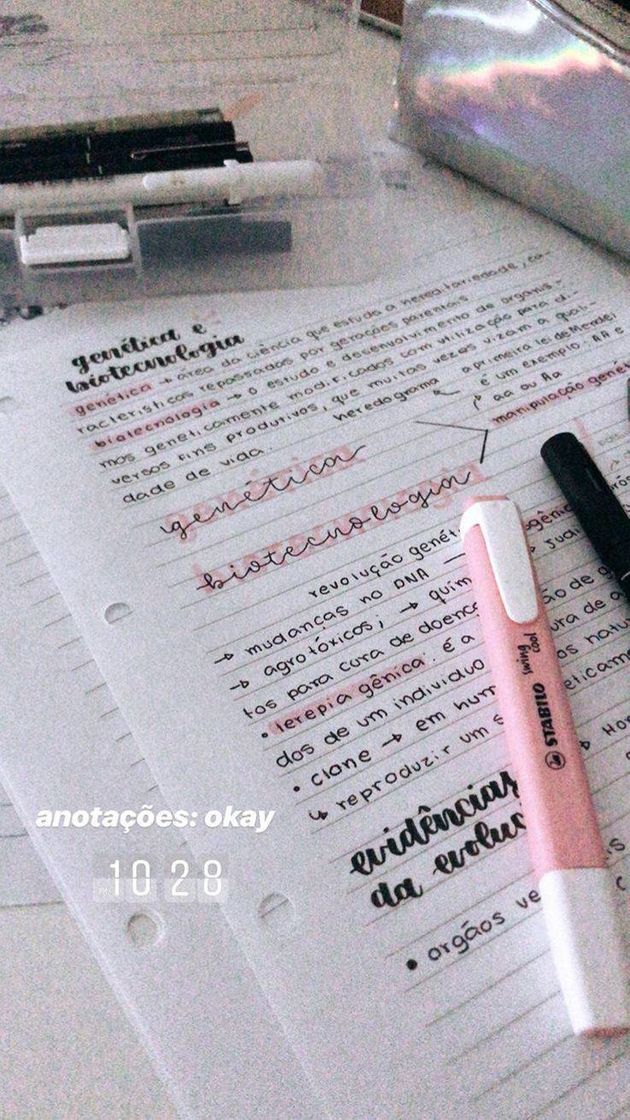 genética e
biotecnologia
genética → área da ciência que estuda a hereditariedade, ca-
racterísticas repassados por gerações parentais.
biotecnologia → o estudo e desenvolvimento de organis-
mos geneticamente modificados com utilização para di-
versos fins produtivos, que muitas vezes vizam a quali-
dade de vida.
heredograma
a primeira lei de Mendel
é um exemplo. AA e
aa ou Aa
manipulação gené
genética
biotecnologia
revolução genét
→ mudanças no DNA →
→ agrotóxicos; → quím
tos para cura de doenç
• terepia gênica: é a
dos de um individuo
• clone → em hum
↳ reproduzir um s
evidências
da evoluç
• orgãos ve
STABILO swing cool
anotações: okay
10 28